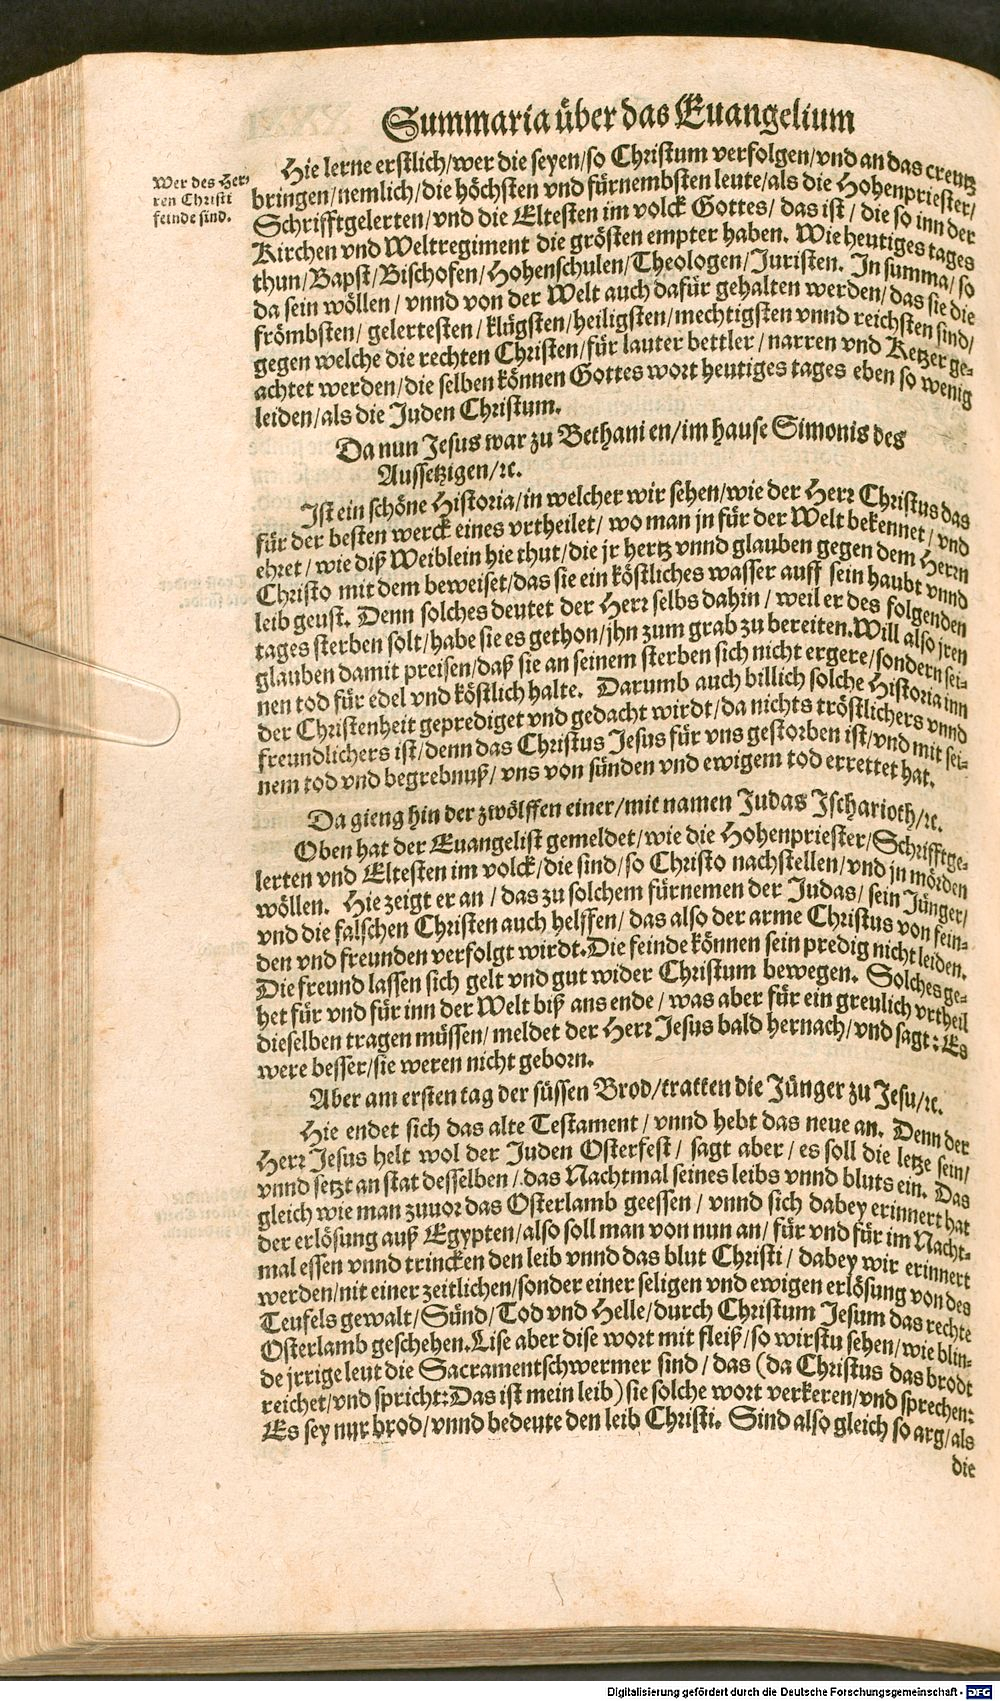 Summaria über das Euangelium
Wer des Her-
ren Christi
feinde sind.
Hie lerne erstlich/wer die seyen/so Christum verfolgen/vnd an das creutz
bringen/nemlich/die höchsten vnd fürnembsten leute/als die Hohenpriester/
Schrifftgelerten/vnd die Eltesten im volck Gottes/das ist/die so inn der
Kirchen vnd Weltregiment die grösten empter haben. Wie heutiges tages
thun/Bapst/Bischofen/Hohenschulen/Theologen/Juristen. In summa/so
da sein wöllen/vnnd von der Welt auch dafür gehalten werden/das sie die
frömbsten/gelertesten/klügsten/heiligsten/mechtigsten vnnd reichsten sind/
gegen welche die rechten Christen/für lauter bettler/narren vnd Ketzer ge-
achtet werden/die selben können Gottes wort heutiges tages eben so wenig
leiden/als die Juden Christum.
Da nun Jesus war zu Bethanien/im hause Simonis des
Aussetzigen/ꝛc.
Ist ein schöne Historia/in welcher wir sehen/wie der Herr Christus das
für der besten werck eines vrtheilet/wo man jn für der Welt bekennet/vnd
ehret/wie diß Weiblein hie thut/die jr hertz vnnd glauben gegen dem Herrn
Christo mit dem beweiset/das sie ein köstliches wasser auff sein haubt vnnd
leib geust. Denn solches deutet der Herr selbs dahin/weil er des folgenden
tages sterben solt/habe sie es gethon/jhn zum grab zu bereiten.Will also jren
glauben damit preisen/daß sie an seinem sterben sich nicht ergere/sondern sei-
nen tod für edel vnd köstlich halte. Darumb auch billich solche Historia inn
der Christenheit geprediget vnd gedacht wirdt/da nichts tröstlichers vnnd
freundlichers ist/denn das Christus Jesus für vns gestorben ist/vnd mit sei-
nem tod vnd begrebnuß/vns von sünden vnd ewigem tod errettet hat.
Da gieng hin der zwölffen einer/mit namen Judas Ischarioth/ꝛc.
Oben hat der Euangelist gemeldet/wie die Hohenpriester/Schrifftge-
lerten vnd Eltesten im volck/die sind/so Christo nachstellen/vnd jn mörden
wöllen. Hie zeigt er an/das zu solchem fürnemen der Judas/sein Jünger/
vnd die falschen Christen auch helffen/das also der arme Christus von fein-
den vnd freunden verfolgt wirdt.Die feinde können sein predig nicht leiden.
Die freund lassen sich gelt vnd gut wider Christum bewegen. Solches ge-
het für vnd für inn der Welt biß ans ende/was aber für ein greulich vrtheil
dieselben tragen müssen/meldet der Herr Jesus bald hernach/vnd sagt: Es
were besser/sie weren nicht geborn.
Aber am ersten tag der süssen Brod/tratten die Jünger zu Jesu/ꝛc.
Hie endet sich das alte Testament/vnnd hebt das neue an. Denn der
Herr Jesus helt wol der Juden Osterfest/sagt aber/es soll die letze sein/
vnnd setzt an stat desselben/das Nachtmal seines leibs vnnd bluts ein. Das
gleich wie man zuuor das Osterlamb geessen/vnnd sich dabey erinnert hat
der erlösung auß Egypten/also soll man von nun an/für vnd für im Nacht-
mal essen vnnd trincken den leib vnnd das blut Christi/dabey wir erinnert
werden/nit einer zeitlichen/sonder einer seligen vnd ewigen erlösung von des
Teufels gewalt/Sünd/Tod vnd Helle/durch Christum Jesum das rechte
Osterlamb geschehen.Lise aber dise wort mit fleiß/so wirstu sehen/wie blin-
de jrrige leut die Sacramentschwermer sind/das (da Christus das brodt
reichet/vnd spricht:Das ist mein leib) sie solche wort verkeren/vnd sprechen:
Es sey nur brod/vnnd bedeute den leib Christi. Sind also gleich so arg/als
die
Digitalisierung gefördert durch die Deutsche Forschungsgemeinschaft - DFG